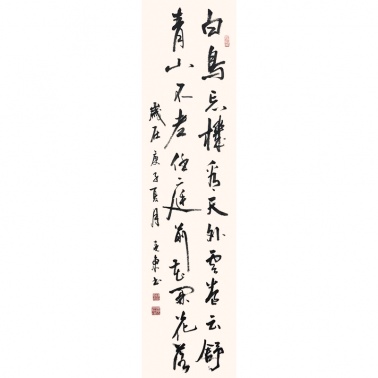 白鳥忘機看天外雲卷云舒
青山不老任庭前花開花落
歲在庚子夏月
東书